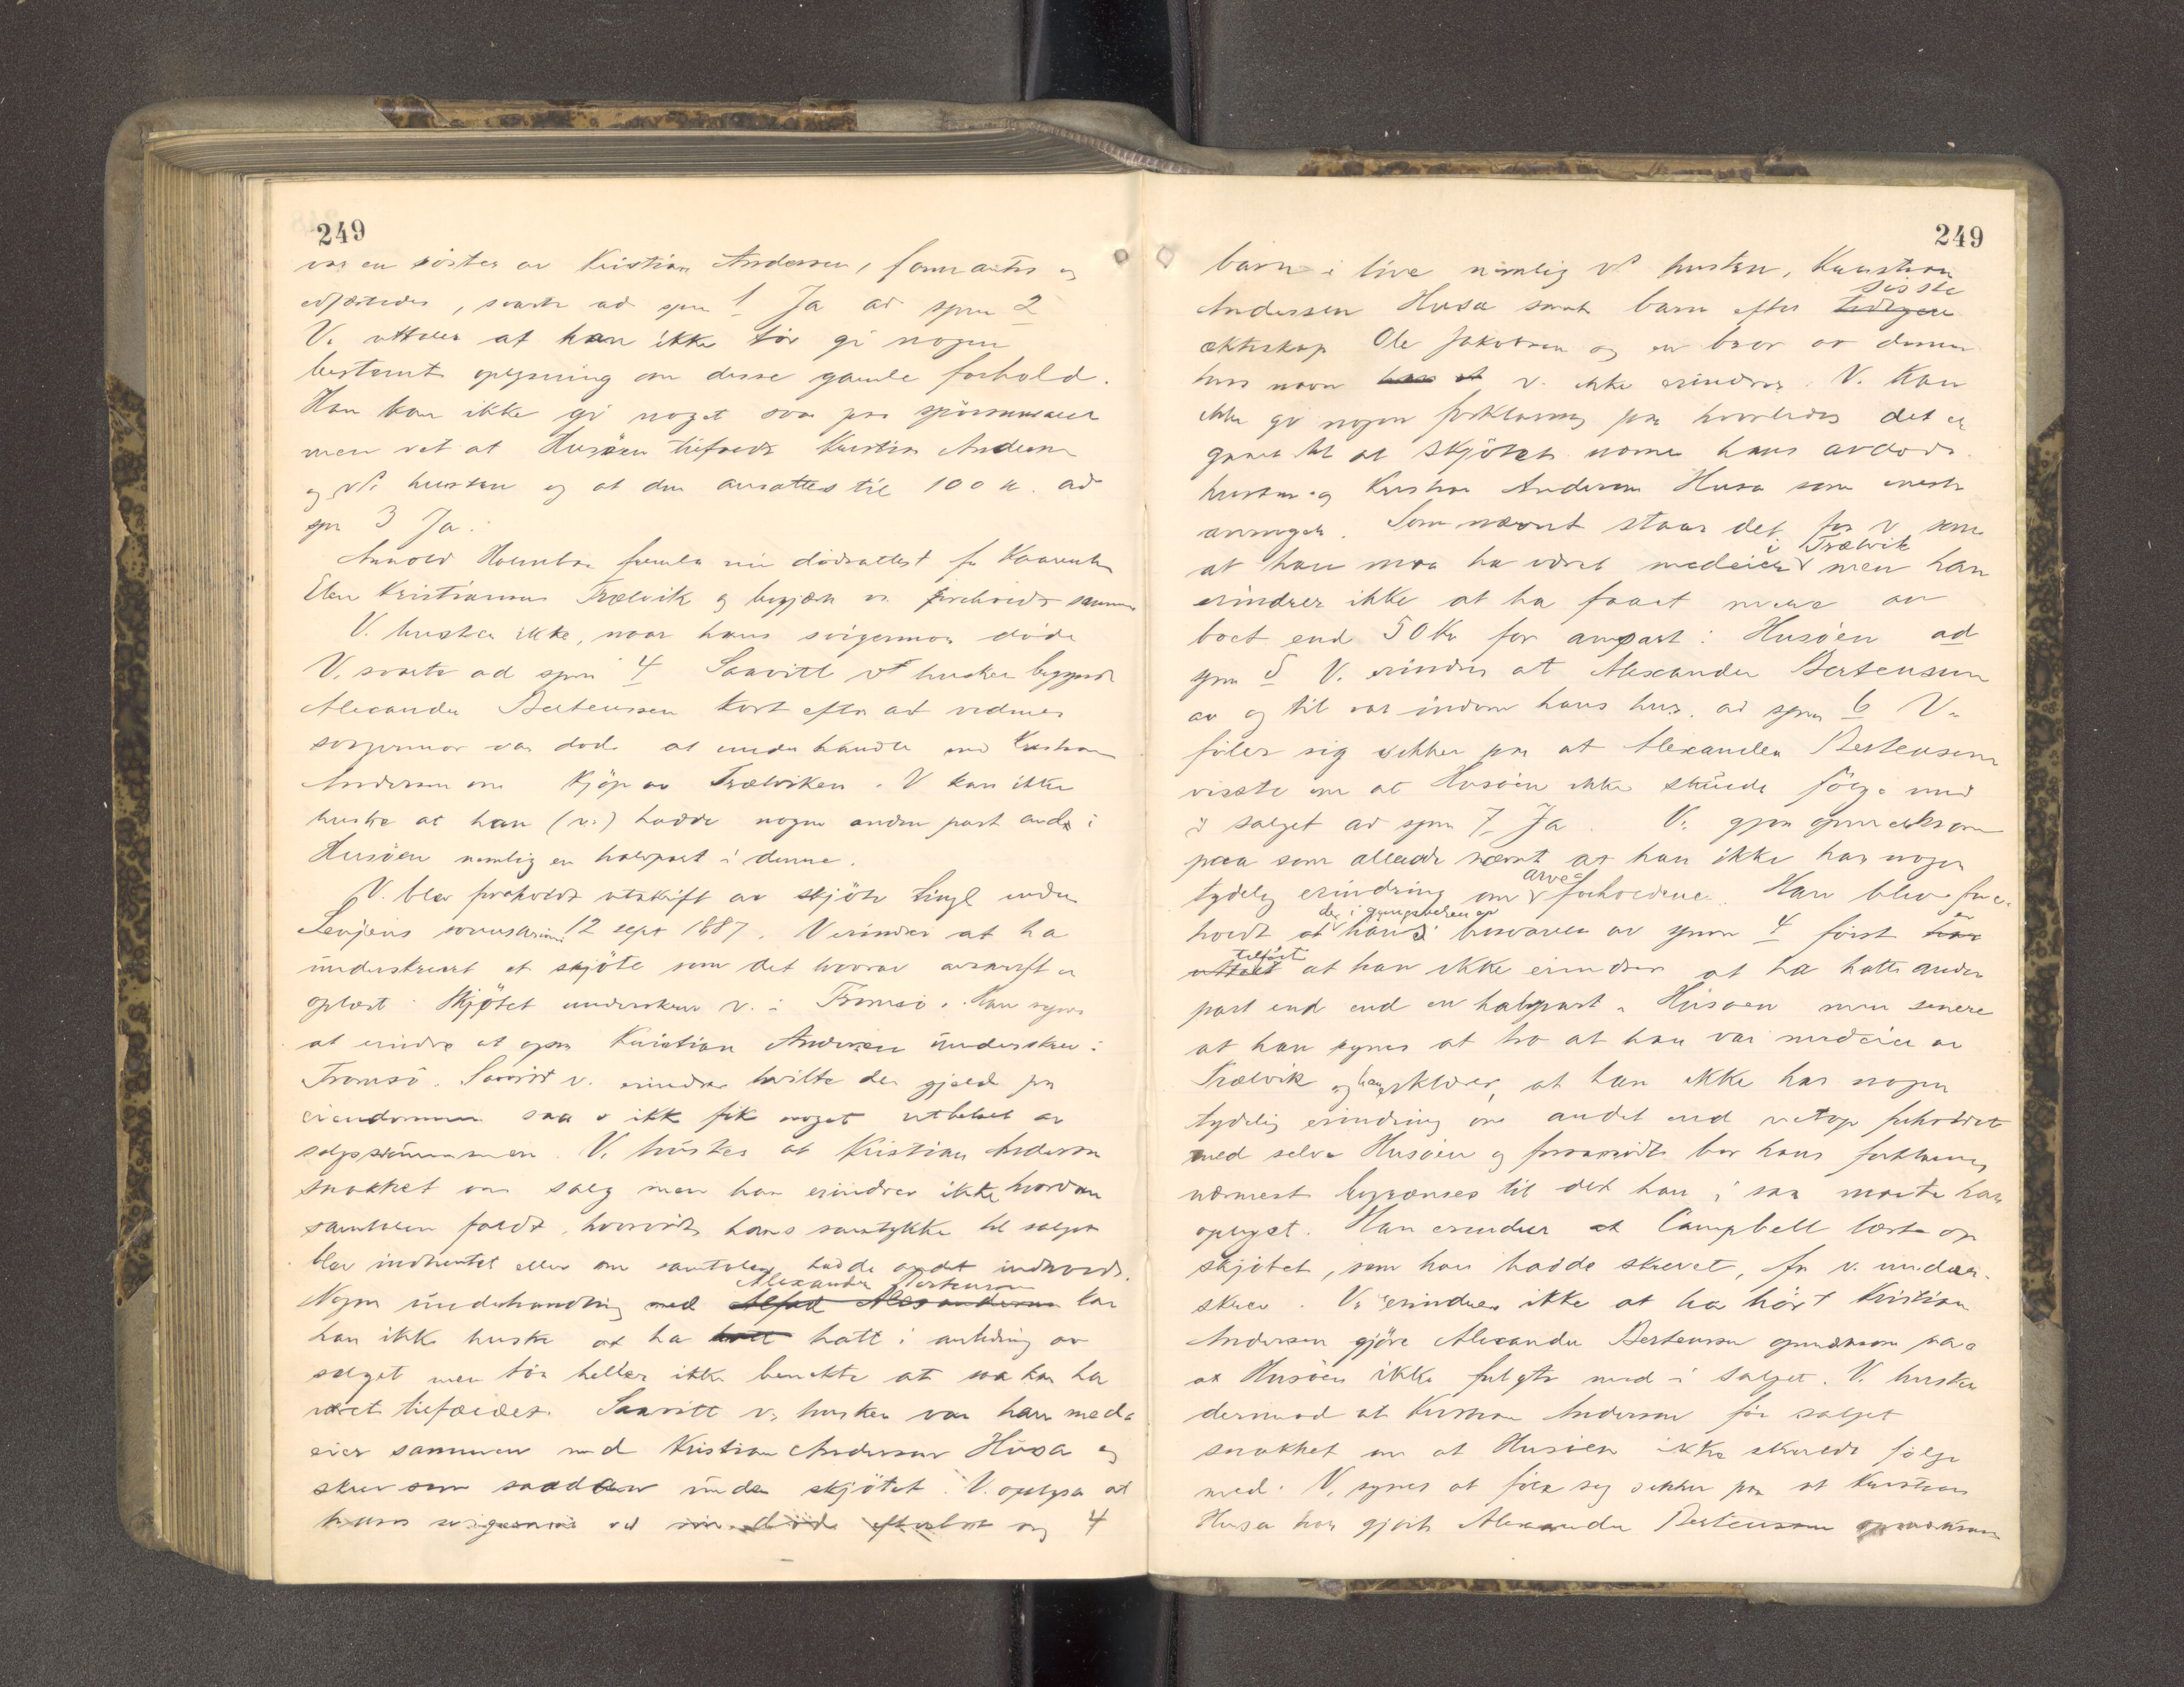 249
var en söster av Kristian Andersen, formantes og
edfæstedes, svarte ad spm 1 Ja ad spm 2
V. uttaler at han ikke tör gi nogen
bestemt oplysning om disse gamle forhold.
Han kan ikke gi noget svar paa spörsmaalet
men vet at Husöen tilfaldt Kristian Andersen
og v's hustru og at den ansattes til 100 kr. ad
spm 3 Ja.
Arnold Holmboe fremla nu dödsattest for
Elen Kristianna Trælvik og begjærte v. foreholdt samme
V. husker ikke, naar hans svigermor döde
V. svarte ad spm 4 Saavidt v. husker begyndte
Alexander Bertensen kort efter at vedkommendes
svigermor var död at underhandle med Kristian
Andersen om kjöp av Trælviken. V kan ikke
huske at han (v.) hadde nogen anden part end i
Husöen nemlig en halvpart i denne.
V. blev foreholdt utskrift av skjöte tingl. under
Senjens sorenskriveri 12 sept 1887. V erindrer at ha
underskrevet et skjöte som det hvorav avskrift er
oplæst. Skjötet underskrev v. i Tromsö. Han synes
at erindre at ogsaa Kristian Andersen underskrev i
Tromsö. Saavidt v. erindrer hvilte der gjæld paa
eiendommen saa v ikke fik noget utbetalt av
salgssummen. V. husker at Kristian Andersen
snakket om salg men han erindrer ikke hvordan
samtalen faldt, hvorvidt hans samtykke til salget
blev indhentet eller om samtalen hadde andet indhold.
Alexander Bertensen
Nogen underhandling med Alfred Alexandersen kan
han ikke huske at ha hatt hatt i anledning av
salget men tör heller ikke benekte at saa kan ha
været tilfældet. Saavidt v. husker var han med-
eier sammen med Kristian Andersen Husa og
skrev som saadan under skjötet. V. oplyser at
hans svigermor ved sin död efterlot sig 4
249
barn i live nemlig v's hustru, Kristian
sidste
Andersen Husa samt barn efter tidligere
ekteskap Ole Jakobsen og en bror av denne
hvis navn v. ikke erindrer. V. kan
ikke gi nogen forklaring paa hvorledes det er
gaaet til at skjötet nævner hans avdöde
hustru og Kristian Andersen Husa som eneste
arvinger. Som nævnt staar det for v. som
i Trælvik
at han maa ha været medeier men han
erindrer ikke at ha faaet mere av
boet end 50 Kr for anpart i Husöen ad
spm 5 V. erindrer at Alexander Bertensen
av og til var indom hans hus. ad spm 6 V.
föler sig sikker paa at Alexander Bertensen
visste om at Husöen ikke skulde fölge med
i salget ad spm 7. Ja. V. gjør opmerksom
paa som allerede nævnt at han ikke har nogen
arve-
tydelig erindring om forholdene. Han blev fore-
holdt at hans besvarelse av spm 4 först har
er
tilfört
uttalt at han ikke erindrer at ha hatt anden
part end end en halvpart i Husöen men senere
at han synes at tro at han var medeier av
Trælvik og han erklærer, at han ikke har nogen
tydelig erindring om andet end netop forholdet
med selve Husöen og forsaavidt bör hans forklaring
nærmest begrænses til det han i saa maate har
oplyst. Han erindrer at Campbell læste op
skjötet, som han hadde skrevet, för v. under-
skrev. V. erindrer ikke at ha hört Kristian
Andersen gjöre Alexander Bertensen opmerksom paa
at Husöen ikke fulgte med i salget. V. husker
derimod at Kristian Andersen för salget
snakket om at Husöen ikke skulde fölge
med. V. synes at föle sig sikker paa at Kristian
Husa har gjort Alexander Bertensen opmerksom